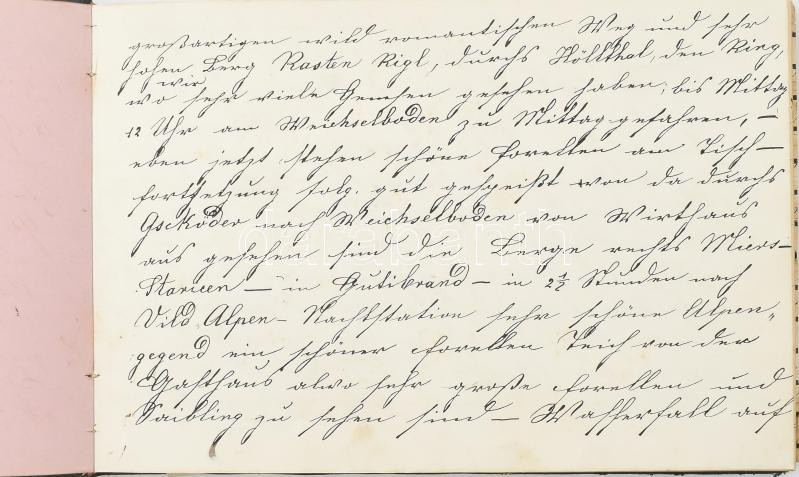 großartigen wild romantischen Weg und sehr
hohen Berg Kasten Rigl, durchs Höllthal, den Ring,
wir
wo sehr viele Gemsen gesehen haben; bis Mittag
12 Uhr am Weichselboden zu Mittag gefahren, –
eben jetzt stehen schöne forellen am Tisch –
fortsetzung folg. gut gespeißt von da durchs
Gschöder nach Weichselboden von Wirthaus
aus gesehen sind die Berge rechts Miers-
Starizen – in Gutibrand – in 2 1/2 Stunden nach
Vild Alpen – Nachtstation sehr schöne Alpen„
gegend ein schöner forellen Teich vor der
Gasthaus alwo sehr große forellen und
Saibling zu sehen sind – Wasserfall auf
darabanth